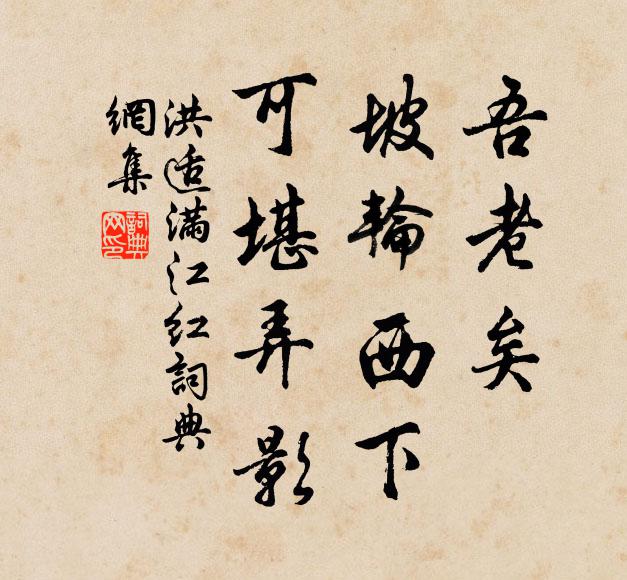 吾老矣
坡輪西下
可堪弄影
洪适满江红詞典
網集
詞典
网印